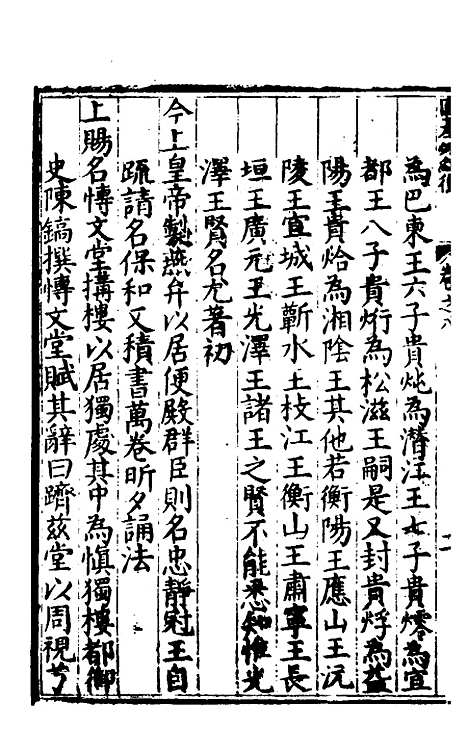 為巴東王六子貴炖為潛江王七子貴熮為宜
都王八子貴烆為松滋王嗣是又封貴烰為益
陽王貴烚為湘陰王其他若衡陽王應山王沅
陵王宜城王蘄水王枝江王衡山王肅寧王長
垣王廣元王光澤王諸王之賢不能悉知惟光
澤王賢名尤著初
今上皇帝製燕弁以居便殿群臣則名忠靜冠王自
疏請名保和又積書萬卷昕夕誦法
上賜名愽文堂搆樓以居獨處其中為慎獨樓都御
史陳鎬撰愽文堂賦其辭曰躋兹堂以周視兮